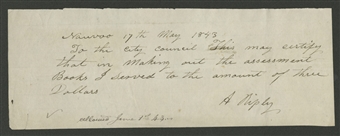 Nauvoo 17th May 1843
To the City Council This may certify
that in making out the assessment
Books I served to the amount of three
Dollars
A Ripley
June 1st